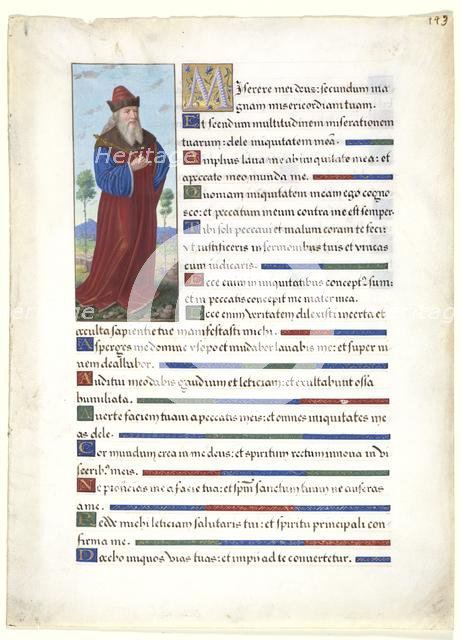 193
Miserere mei deus: secundum ma
gnam misericordiam tuam.
Et secundum multitudinem miserationem
tuarum: dele iniquitatem meā.
Amplius lava me ab iniquitate mea: et
a peccato meo munda me.
Quoniam iniquitatem meam ego cogno
sco: et peccatum meum contra me est semper.
Tibi soli peccavi et malum coram te feci:
vt iustificeris in sermonibus tuis et vincas
cum iudicaris.
Ecce enim in iniquitatibus concept9 sum:
et in peccatis concepit me mater mea.
Ecce enim veritatem dilexisti: incerta et
occulta sapientie tue manifestasti michi.
Asperges me domine ysopo et mūdabor lavabis me: et super ni
vem dealbabor.
Auditui meo dabis gaudium et leticiam: et exultabunt ossa
humiliata.
Averte faciem tuam a peccatis meis: et omnes iniquitates me
as dele.
Cor mundum crea in me deus: et spiritum rectum innova in vi
sceribus meis.
Ne proiicias me a facie tua: et spm sanctum tuum ne auferas
a me.
Redde michi leticiam salutaris tui: et spiritu principali con
firma me.
Docebo iniquos vias tuas: et impii ad te convertetur.
Heritage
Heritage